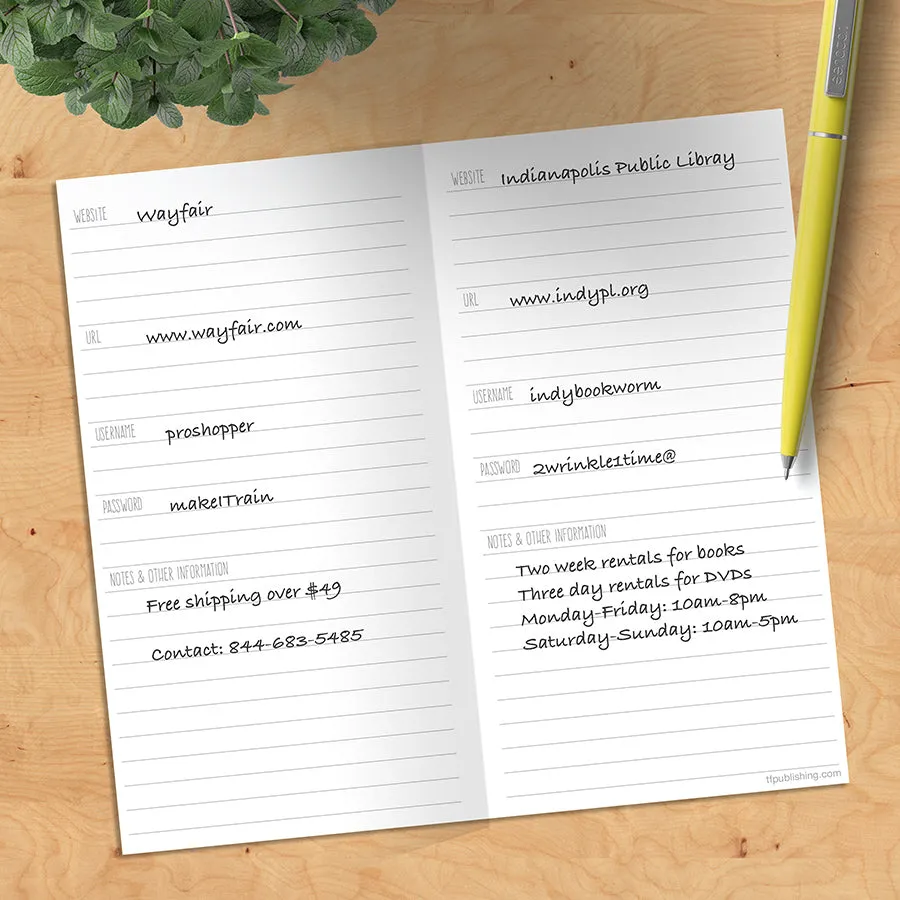 WEBSITE Wayfair
URL www.wayfair.com
USERNAME proshopper
PASSWORD make1Train
NOTES & OTHER INFORMATION
Free shipping over $49
Contact: 844-683-5485
WEBSITE Indianapolis Public Libray
URL www.indypl.org
USERNAME indybookworm
PASSWORD 2wrinkle1time@
NOTES & OTHER INFORMATION
Two week rentals for books
Three day rentals for DVDs
Monday-Friday: 10am-8pm
Saturday-Sunday: 10am-5pm
tfpublishing.com